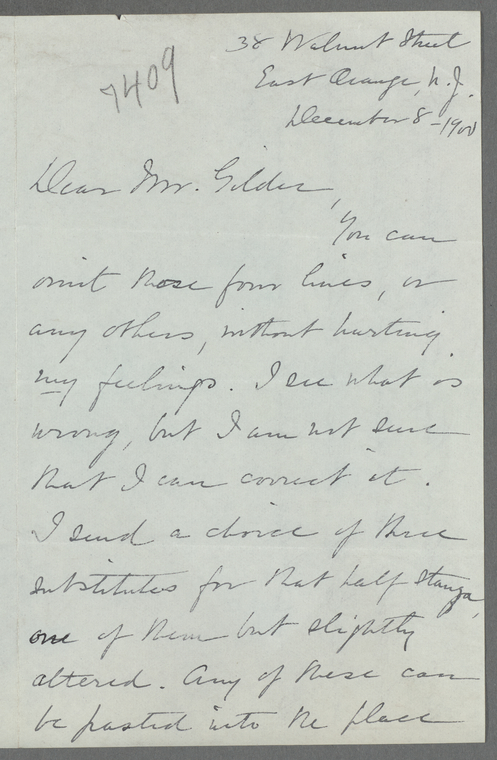 7409
38 Walnut Street
East Orange, N.J.
December 8-1900
Dear Mr. Gilder,
You can
omit those four lines, or
any others, without hurting
my feelings. I see what is
wrong, but I am not sure
that I can correct it.
I send a choice of three
substitutes for that half stanza,
one of them but slightly
altered. Any of these can
be pasted into the place